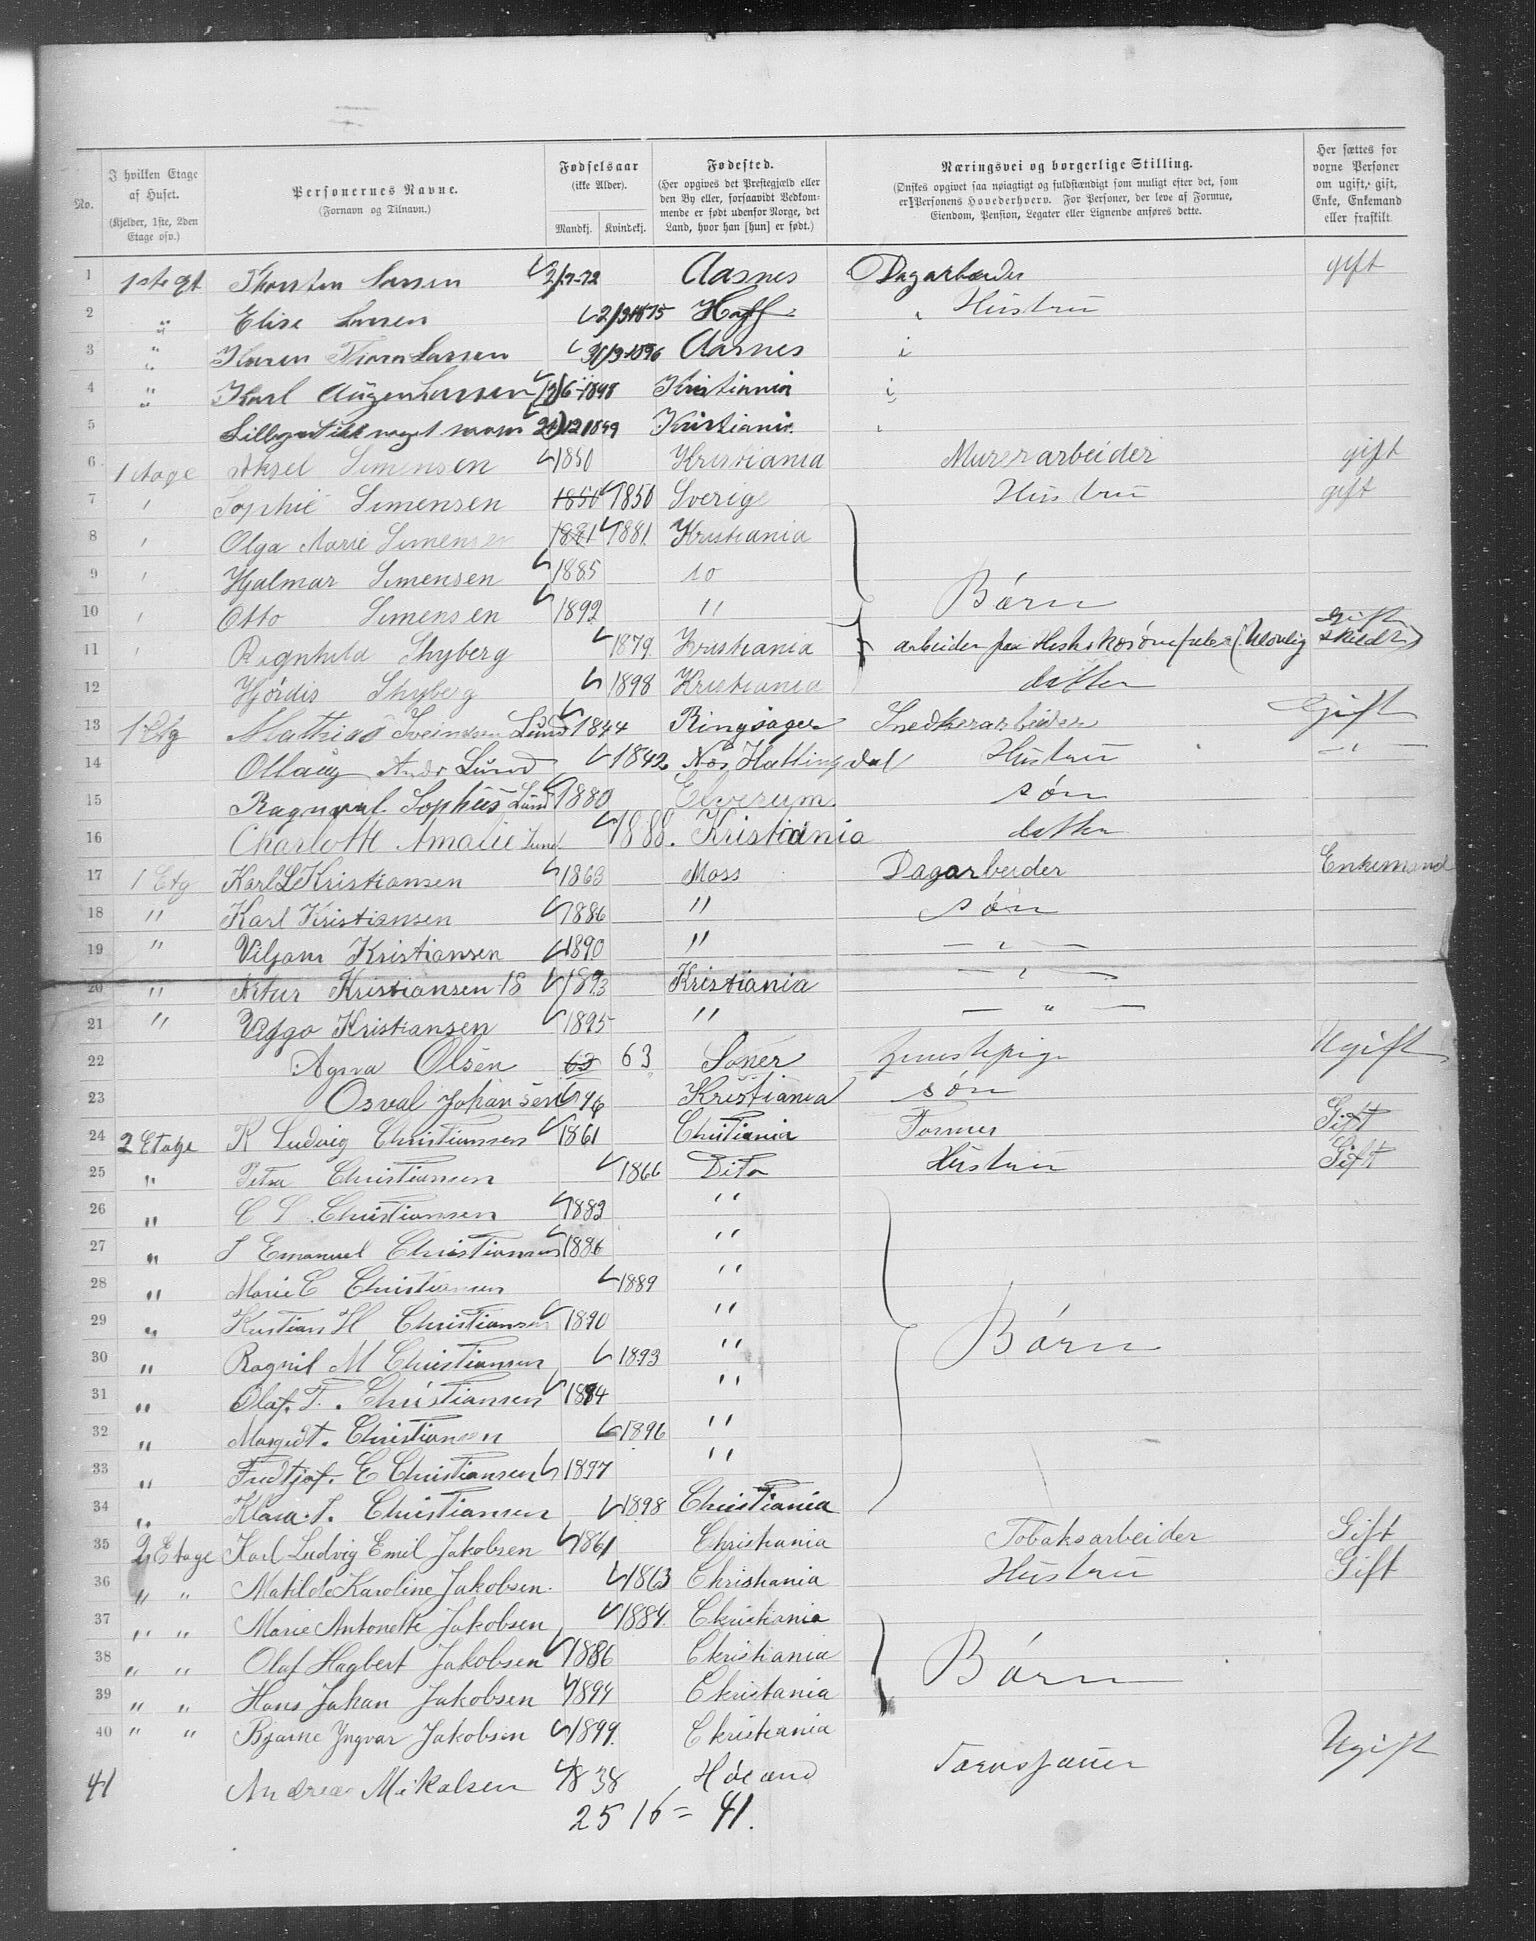 No. | I hvilken Etage af Huset. (Kjelder, 1ste, 2den Etage osv.) | Personernes Navne. (Fornavn og Tilnavn.) | Fødselsaar (ikke Alder). Mandkj. Kvindekj. | Fødested. (Her opgives det Prestegjæld eller den By eller, forsaavidt Vedkommende er født udenfor Norge, det Land, hvor han [hun] er født.) | Næringsvei og borgerlige Stilling. (Ønskes opgivet saa nøiagtigt og fuldstændigt som muligt efter det, som er Personens Hovederhverv. For Personer, der leve af Formue, Eiendom, Pension, Legater eller Lignende anføres dette. | Her sættes for voxne Personer om ugift, gift, Enke, Enkemand eller fraskilt.
1 1ste et Thorsten Larsen 2/7-72 Aasnes Dagarbeider gift
2 " Elise Larsen 2/3 1875 Hoff Hustru
3 " Karen Larsen Aasnes
4 " Karl Larsen Kristiania
5 Lillegut ikke noget navn Kristiania
6 1 Etage Aksel Simensen 1850 Kristiania Murerarbeider gift
7 " Sophie Simensen 1850 1850 Sverige Hustru gift
8 " Olga Marie Simensen 1881 1881 Kristiania
9 " Hjalmar Simensen 1885 do
10 " Otto Simensen 1892 " Børn
11 " Ragnhild Thyberg 1879 Kristiania arbeider paa gift skildt
12 Hjørdis Thyberg 1898 Kristiania datter
13 1 Etg Mathias Lund 1844 Ringsager Snedkerarbeider Gift
14 Ollaug Andr Lund 1842 Nes Hallingdal Hustru "
15 Ragnval Sophus Lund 1880 Elverum søn
16 Charlotte Amalie Lund 1888. Kristiania datter
17 1 Etg Karl L Kristiansen 1863 Moss Dagarbeider Enkemand
18 " Karl Kristiansen 1886 " søn
19 " Viljam Kristiansen 1890 " — " —
20 " Artur Kristiansen 18 1893 Kristiania — " —
21 " Viggo Kristiansen 1895 " — " —
22 Agna Olsen 63 63 Soner Ugift
23 Osval Johansen 96 Kristiania søn
24 2 Etage K Ludvig Christiansen 1861 Christiania Former Gift
25 " Petra Christiansen 1866 Dito Hustru Gift
26 " C L. Christiansen 1883 "
27 " J Emanuel Christiansen 1886 "
28 " Marie C Christiansen 1889 "
29 " Kristian H Christiansen 1890 " Børn
30 " Ragnil M Christiansen 1893 "
31 " Olaf. T. Christiansen 1894 "
32 " Margidt. Christiansen 1896 "
33 " Fredtjof. E Christiansen 1897 "
34 " Klara. S. Christiansen 1898 Christiania
35 2 Etage Karl Ludvig Emil Jakobsen 1861 Christiania Tobaksarbeider Gift
36 " " Matilde Karoline Jakobsen. 1863 Christiania Hustru Gift
37 " " Marie Antonette Jakobsen 1884. Christiania
38 " " Olaf Hagbert Jakobsen 1886 Christiania Børn
39 " " Hans Johan Jakobsen 1894 Christania
40 " " Bjarne Yngvar Jakobsen 1899. Christiania
41 Andreas Mikalsen 1838 Høland Ugift
25 16 = 41.